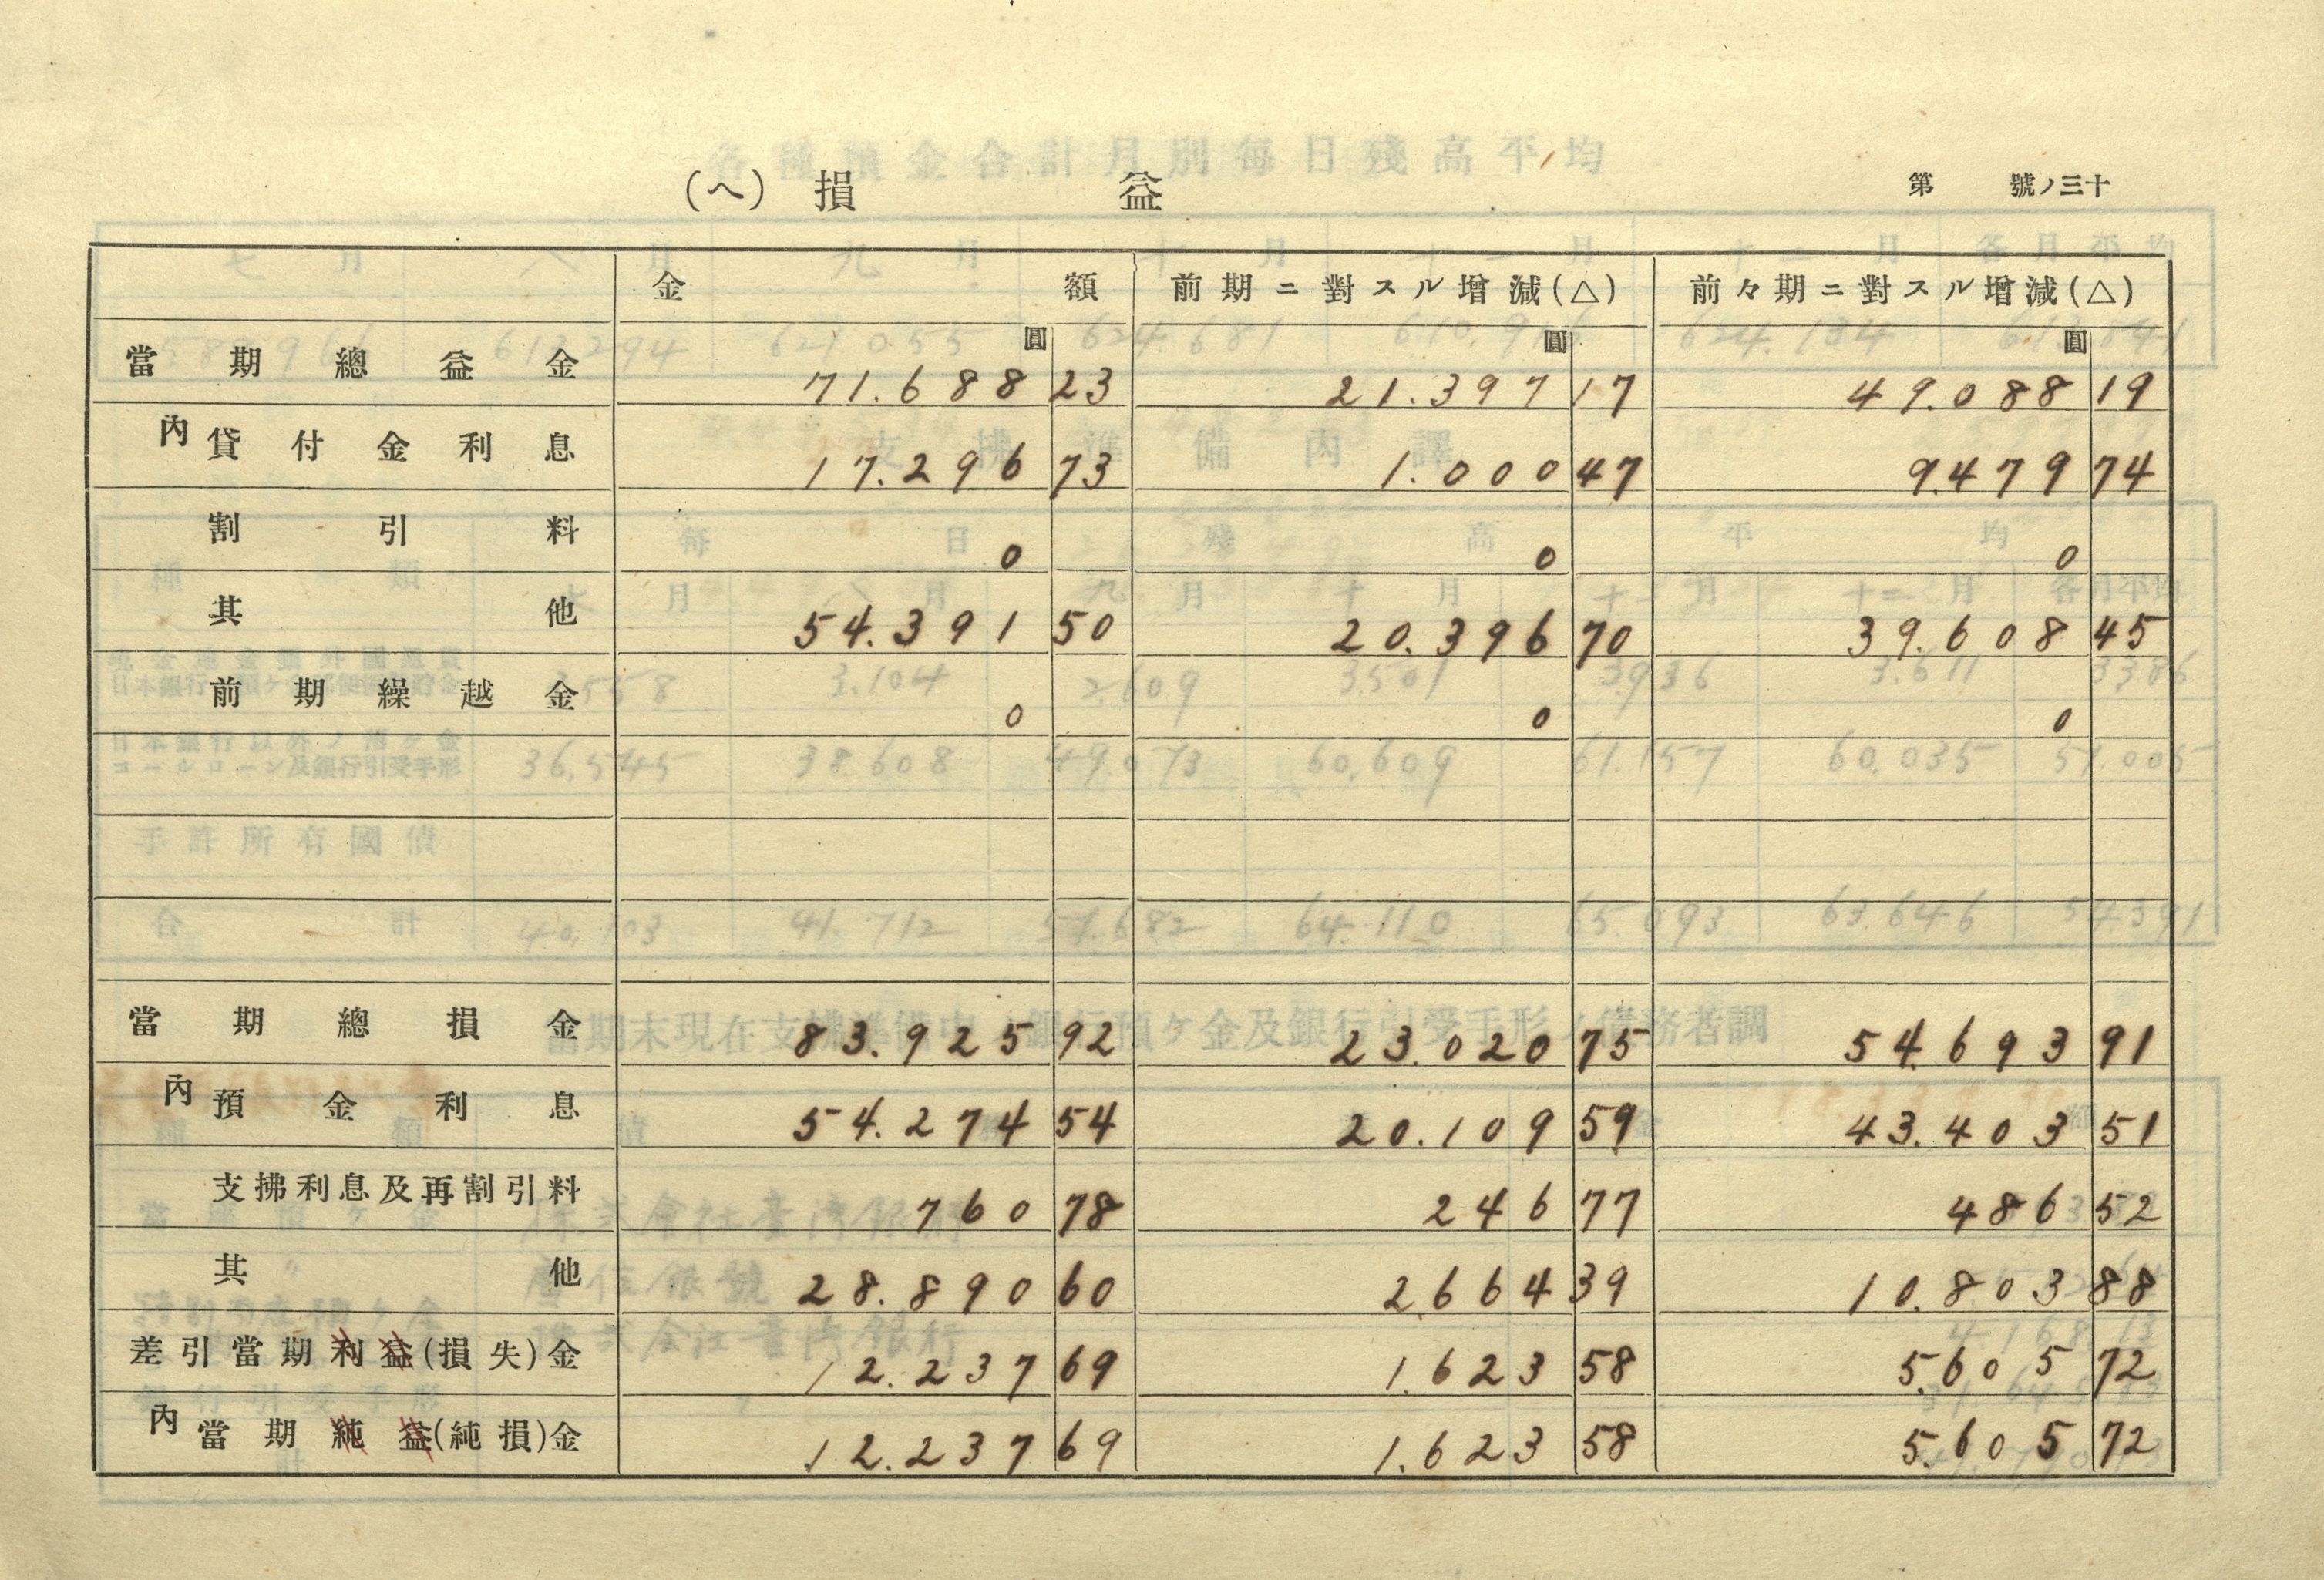 (ヘ) 損 益
第 號ノ三十
金 額 前期ニ對スル增減(△) 前々期ニ對スル增減(△)
圓 圓 圓
當期總益金 71.688 23 21.397 17 49.088 19
內 貸付金利息 17.296 73 1.000 47 9.479 74
割引料 0 0 0
其他 54.391 50 20.396 70 39.608 45
前期繰越金 0 0 0
當期總損金 83.925 92 23.020 75 54.693 91
內 預金利息 54.274 54 20.109 59 43.403 51
支拂利息及再割引料 760 78 246 77 486 52
其他 28.890 60 2.664 39 10.803 88
差引當期利益(損失)金 12.237 69 1.623 58 5.605 72
內 當期純益(純損)金 12.237 69 1.623 58 5.605 72